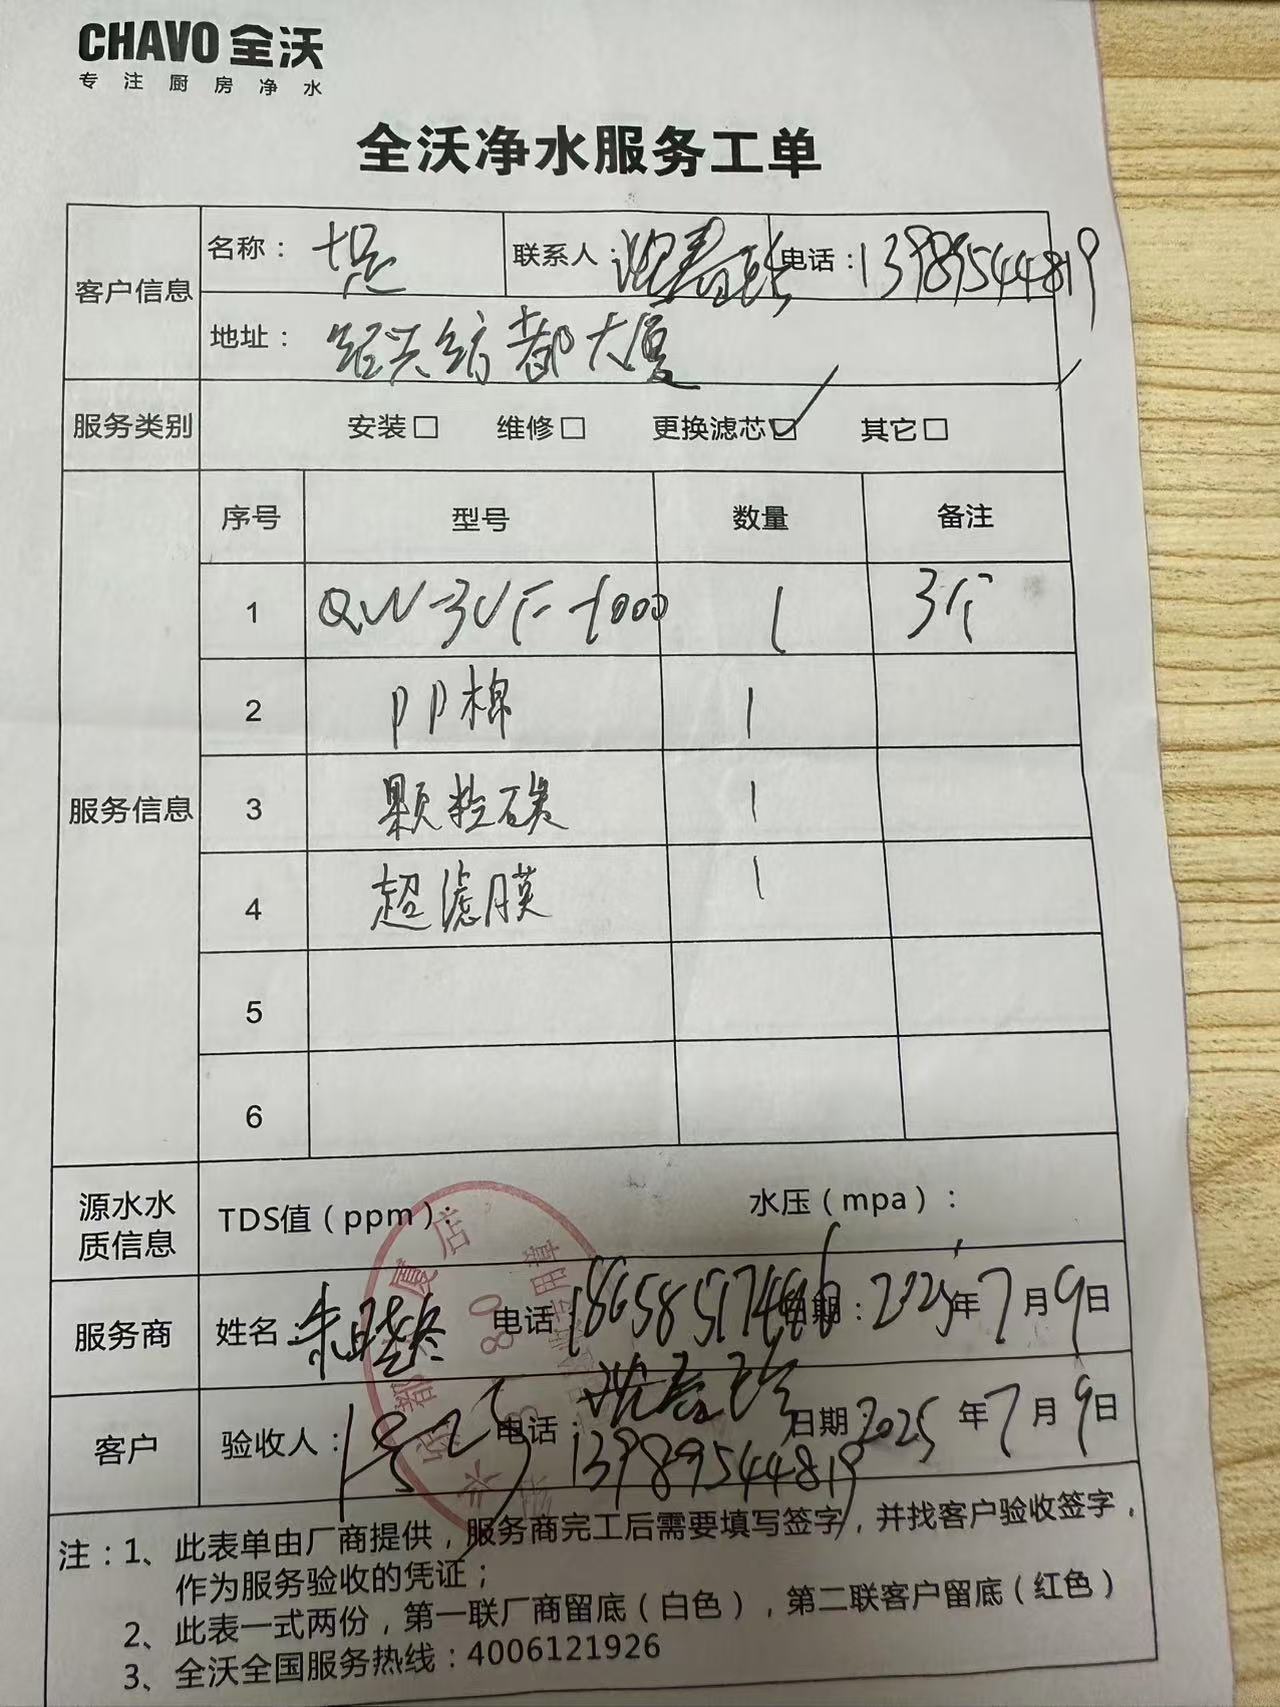 CHAVO 全沃
专注厨房净水
全沃净水服务工单
客户信息
名称：
联系人：沈春 电话：13989544819
地址：绍兴纺都大厦
服务类别 安装□ 维修□ 更换滤芯☑ 其它□
服务信息
序号 型号 数量 备注
1 QW-3UF-1000 1 3个
2 PP棉 1
3 颗粒碳 1
4 超滤膜 1
5
6
源水水质信息 TDS值（ppm）： 水压（mpa）：
服务商 姓名：朱 电话： 日期：2025年7月9日
客户 验收人： 电话：13989544819 日期：2025年7月9日
注：1、此表单由厂商提供，服务商完工后需要填写签字，并找客户验收签字，
作为服务验收的凭证；
2、此表一式两份，第一联厂商留底（白色），第二联客户留底（红色）
3、全沃全国服务热线：4006121926